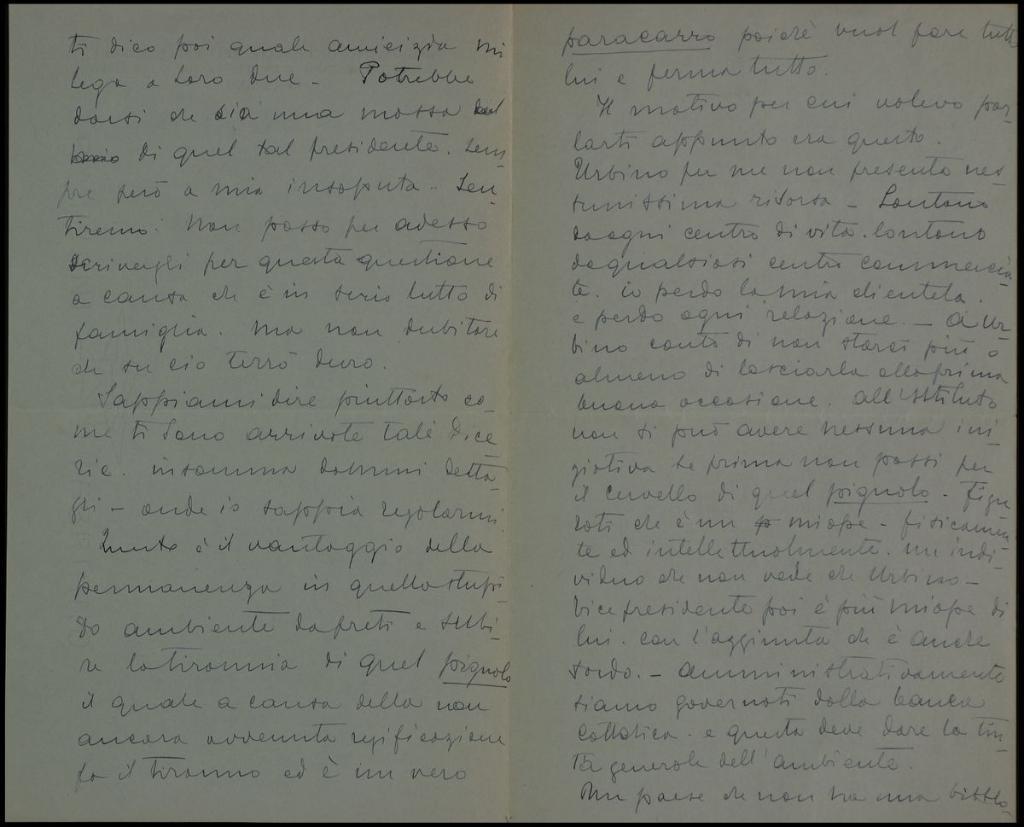 ti dico poi quale amicizia mi
lega a loro due - Potrebbe
darsi che sia una mossa del
di quel tal presidente. Sem-
pre però a mia insaputa. Sen-
tiremo. Non posso per adesso
scrivergli per questa questione
a causa che è in serio lutto di
famiglia. Ma non dubitare
che su ciò terrò duro.
Sappiami dire piuttosto co-
me ti sono arrivate tali dice-
rie. insomma dammi detta-
gli - onde io sappia regolarmi.
Questo è il vantaggio della
permanenza in quello stupi-
do ambiente da preti e subi-
re la tirannia di quel pignolo
il quale a causa della non
ancora avvenuta regificazione
fa il tiranno ed è un vero
paracarro poichè vuol fare tutto
lui e ferma tutto.
Il motivo per cui volevo par-
larti appunto era questo.
Urbino per me non presenta nes-
sunissima risorsa - Lontano
da ogni centro di vita. lontano
da qualsiasi centro commercia-
le. io perdo la mia clientela.
e perdo ogni relazione. - A Ur-
bino conto di non starci più o
almeno di lasciarla alla prima
buona occasione. all'Istituto
non si può avere nessuna ini-
ziativa se prima non passi per
il cervello di quel pignolo - Figu-
rati che è un miope - fisicamen-
te ed intellettualmente. un indi-
viduo che non vede che Urbino -
Vice presidente poi è più miope di
lui. con l'aggiunta che è anche
sordo. - amministrativamente
siamo governati dalla banca
cattolica. e questa deve dare la tin-
ta generale dell'ambiente.
Un paese che non ha una biblio-